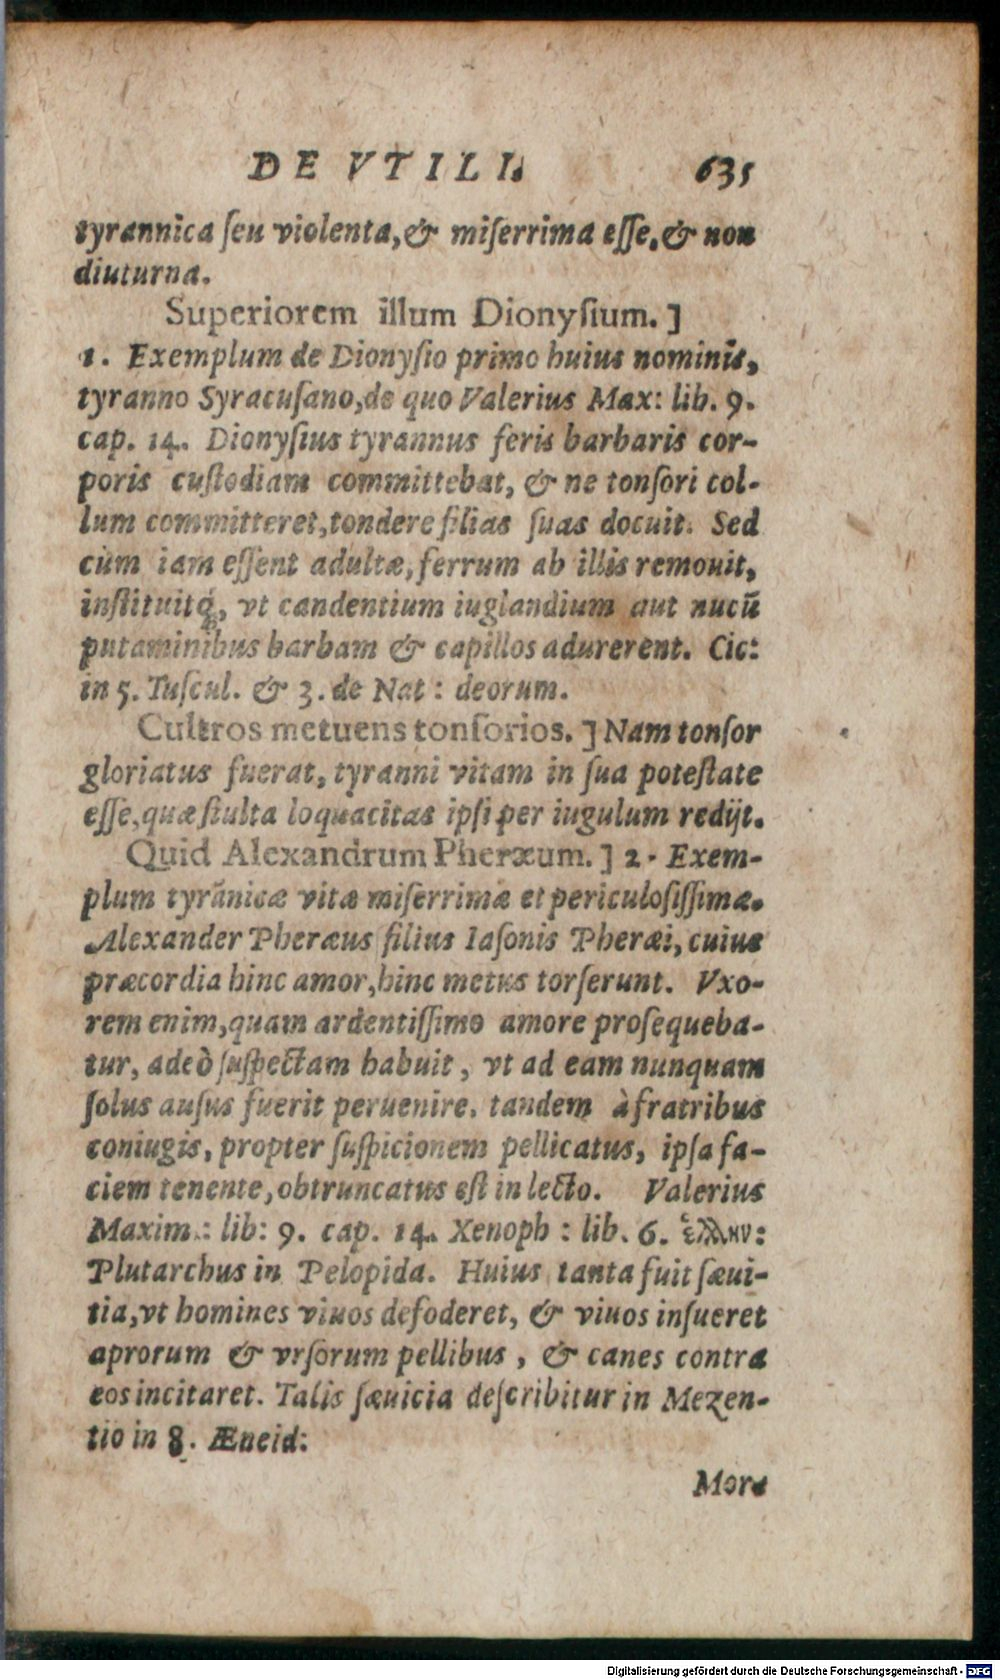 DE VTILI. 635
tyrannica ſeu violenta, & miſerrima eſſe, & non
diuturna.
Superiorem illum Dionyſium. ]
1. Exemplum de Dionyſio primo huius nominis,
tyranno Syracuſano, de quo Valerius Max: lib. 9.
cap. 14. Dionyſius tyrannus feris barbaris cor-
poris cuſtodiam committebat, & ne tonſori col-
lum committeret, tondere filias ſuas docuit. Sed
cùm iam eſſent adultæ, ferrum ab illis remouit,
inſtituitq́;, vt candentium iuglandium aut nucū
putaminibus barbam & capillos adurerent. Cic:
in 5. Tuſcul. & 3. de Nat: deorum.
Cultros metuens tonſorios. ] Nam tonſor
gloriatus fuerat, tyranni vitam in ſua poteſtate
eſſe, quæ ſtulta loquacitas ipſi per iugulum redijt.
Quid Alexandrum Pheræum. ] 2. Exem-
plum tyrānicæ vitæ miſerrimæ et periculoſiſſimæ.
Alexander Pheræus filius Iaſonis Pheræi, cuius
præcordia hinc amor, hinc metus torſerunt. Vxo-
rem enim, quam ardentiſſimo amore proſequeba-
tur, adeò ſuſpectam habuit, vt ad eam nunquam
ſolus auſus fuerit peruenire. tandem à fratribus
coniugis, propter ſuſpicionem pellicatus, ipſa fa-
ciem tenente, obtruncatus eſt in lecto. Valerius
Maxim.: lib: 9. cap. 14. Xenoph: lib. 6. ἑλλην:
Plutarchus in Pelopida. Huius tanta fuit ſæui-
tia, vt homines viuos defoderet, & viuos inſueret
aprorum & vrſorum pellibus, & canes contra
eos incitaret. Talis ſæuicia deſcribitur in Mezen-
tio in 8. Æneid:
Mors
Digitalisierung gefördert durch die Deutsche Forschungsgemeinschaft - DFG